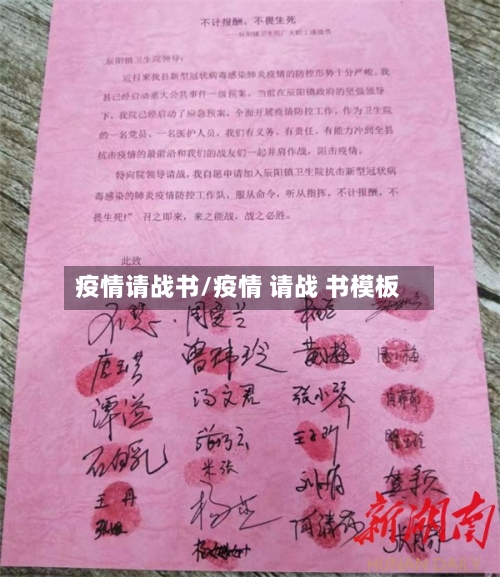 不计报酬、不畏生死
——辰阳镇卫生院广大职工请战书
辰阳镇卫生院领导:
近日来我县新型冠状病毒感染肺炎疫情的防控形势十分严峻,我
县已经启动重大公共事件一级预案。当前在辰阳镇政府的坚强领导
下,我院已经启动了应急预案,全面开展疫情防控工作。作为卫生院
的一名党员、一名医护人员,我们有义务、有责任、有能力冲到全县
抗击疫情的最前沿和我们的战友们一起并肩作战,阻击疫情。
特向院领导请战,我自愿申请加入辰阳镇卫生院抗击新型冠状病
毒感染的肺炎疫情防控工作队,服从命令,听从指挥,不计报酬,不
畏生死!”召之即来,来之能战,战之必胜。
此致
疫情请战书/疫情 请战 书模板
周爱兰
唐玉芳 曾祎玲 黄小艳
谭溢 冯文君 张小琴
石白乳
米张
王丹 龚颖
新湖南